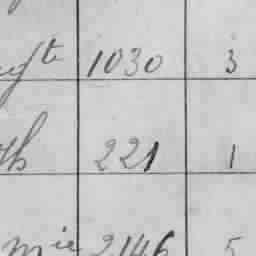 1030 3
221 1
mie 2146 5